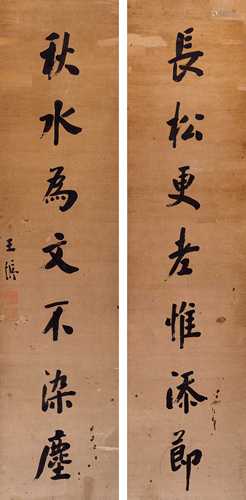 長松更老惟添節
秋水為文不染塵
王